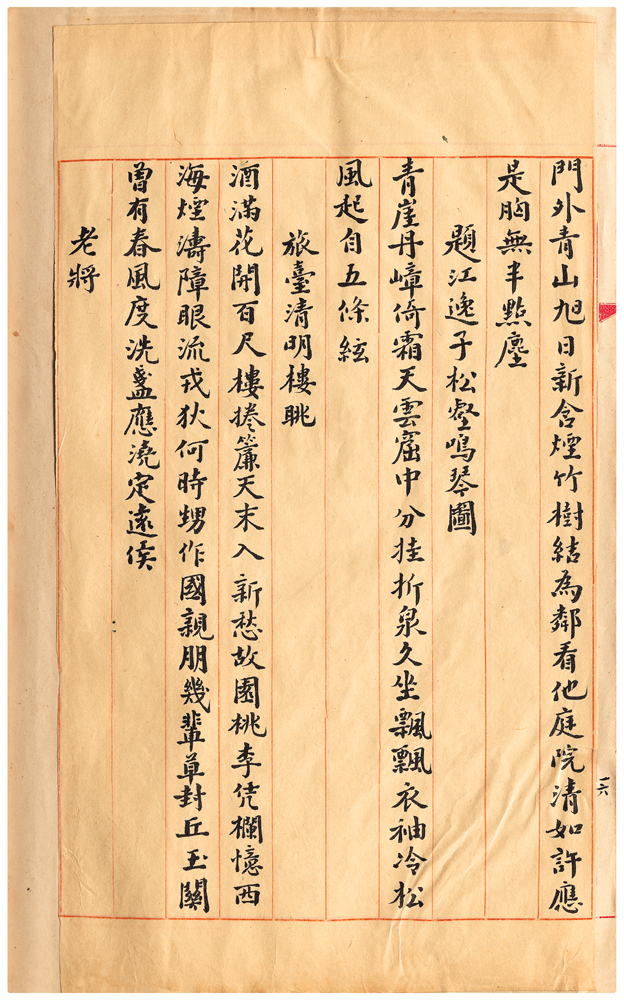 門外青山旭日新含煙竹樹結為鄰看他庭院清如許應
是胸無半點塵
題江逸子松壑鳴琴圖
青崖丹嶂倚霜天雲窟中分挂折泉久坐飄飄衣袖冷松
風起自五條絃
旅臺清明樓眺
酒滿花開百尺樓捲簾天末入新愁故園桃李凭欄憶西
海煙濤障眼流戎狄何時甥作國親朋幾輩草封丘玉關
曾有春風度洗盞應澆定遠侯
老將
一六